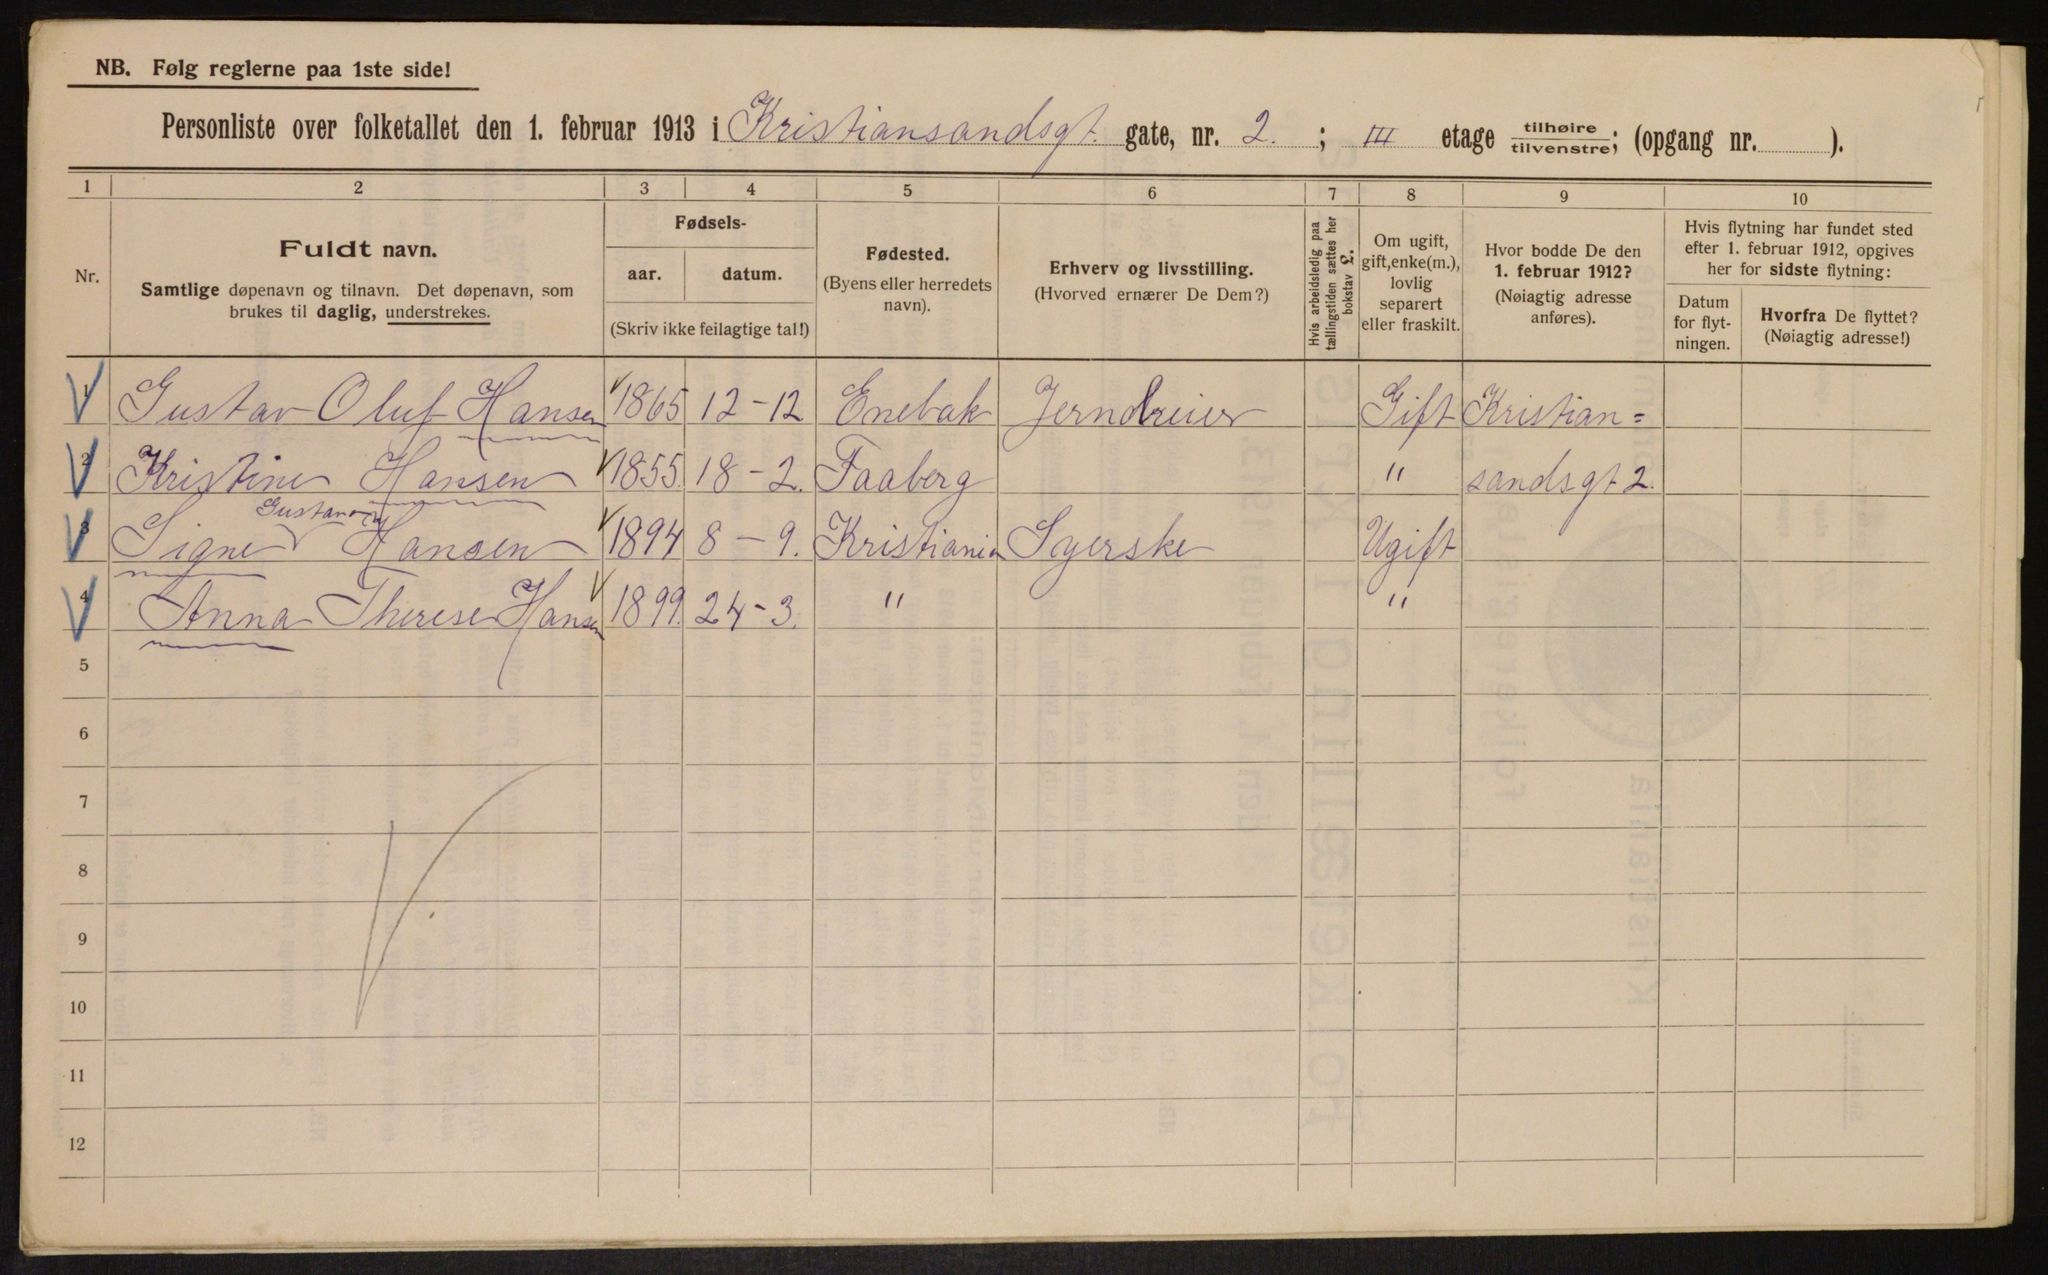 NB. Følg reglerne paa 1ste side!
Personliste over folketallet den 1. februar 1913 i Kristiansandsgt. gate, nr. 2. ; III etage tilhøire tilvenstre; (opgang nr. ).
1 2 3 4 5 6 7 8 9 10
Nr.
Fuldt navn.
Samtlige døpenavn og tilnavn. Det døpenavn, som
brukes til daglig, understrekes.
Fødsels-
aar. datum.
(Skriv ikke feilagtige tal!)
Fødested.
(Byens eller herredets
navn).
Erhverv og livsstilling.
(Hvorved ernærer De Dem?)
Hvis arbeidsledig paa
tællingstiden sættes her
bokstav L.
Om ugift,
gift, enke(m.),
lovlig
separert
eller fraskilt.
Hvor bodde De den
1. februar 1912?
(Nøiagtig adresse
anføres).
Hvis flytning har fundet sted
efter 1. februar 1912, opgives
her for sidste flytning:
Datum
for flyt-
ningen.
Hvorfra De flyttet?
(Nøiagtig adresse!)
1 Gustav Oluf Hansen 1865 12-12 Enebak Jerndreier Gift Kristian=
2 Kristine Hansen 1855. 18-2. Faaberg " sandsgt 2.
Gustava
3 Signe Hansen 1894 8-9. Kristiania Syerske Ugift
4 Anna Therese Hansen 1899. 24-3. " "
5
6
7
8
9
10
11
12